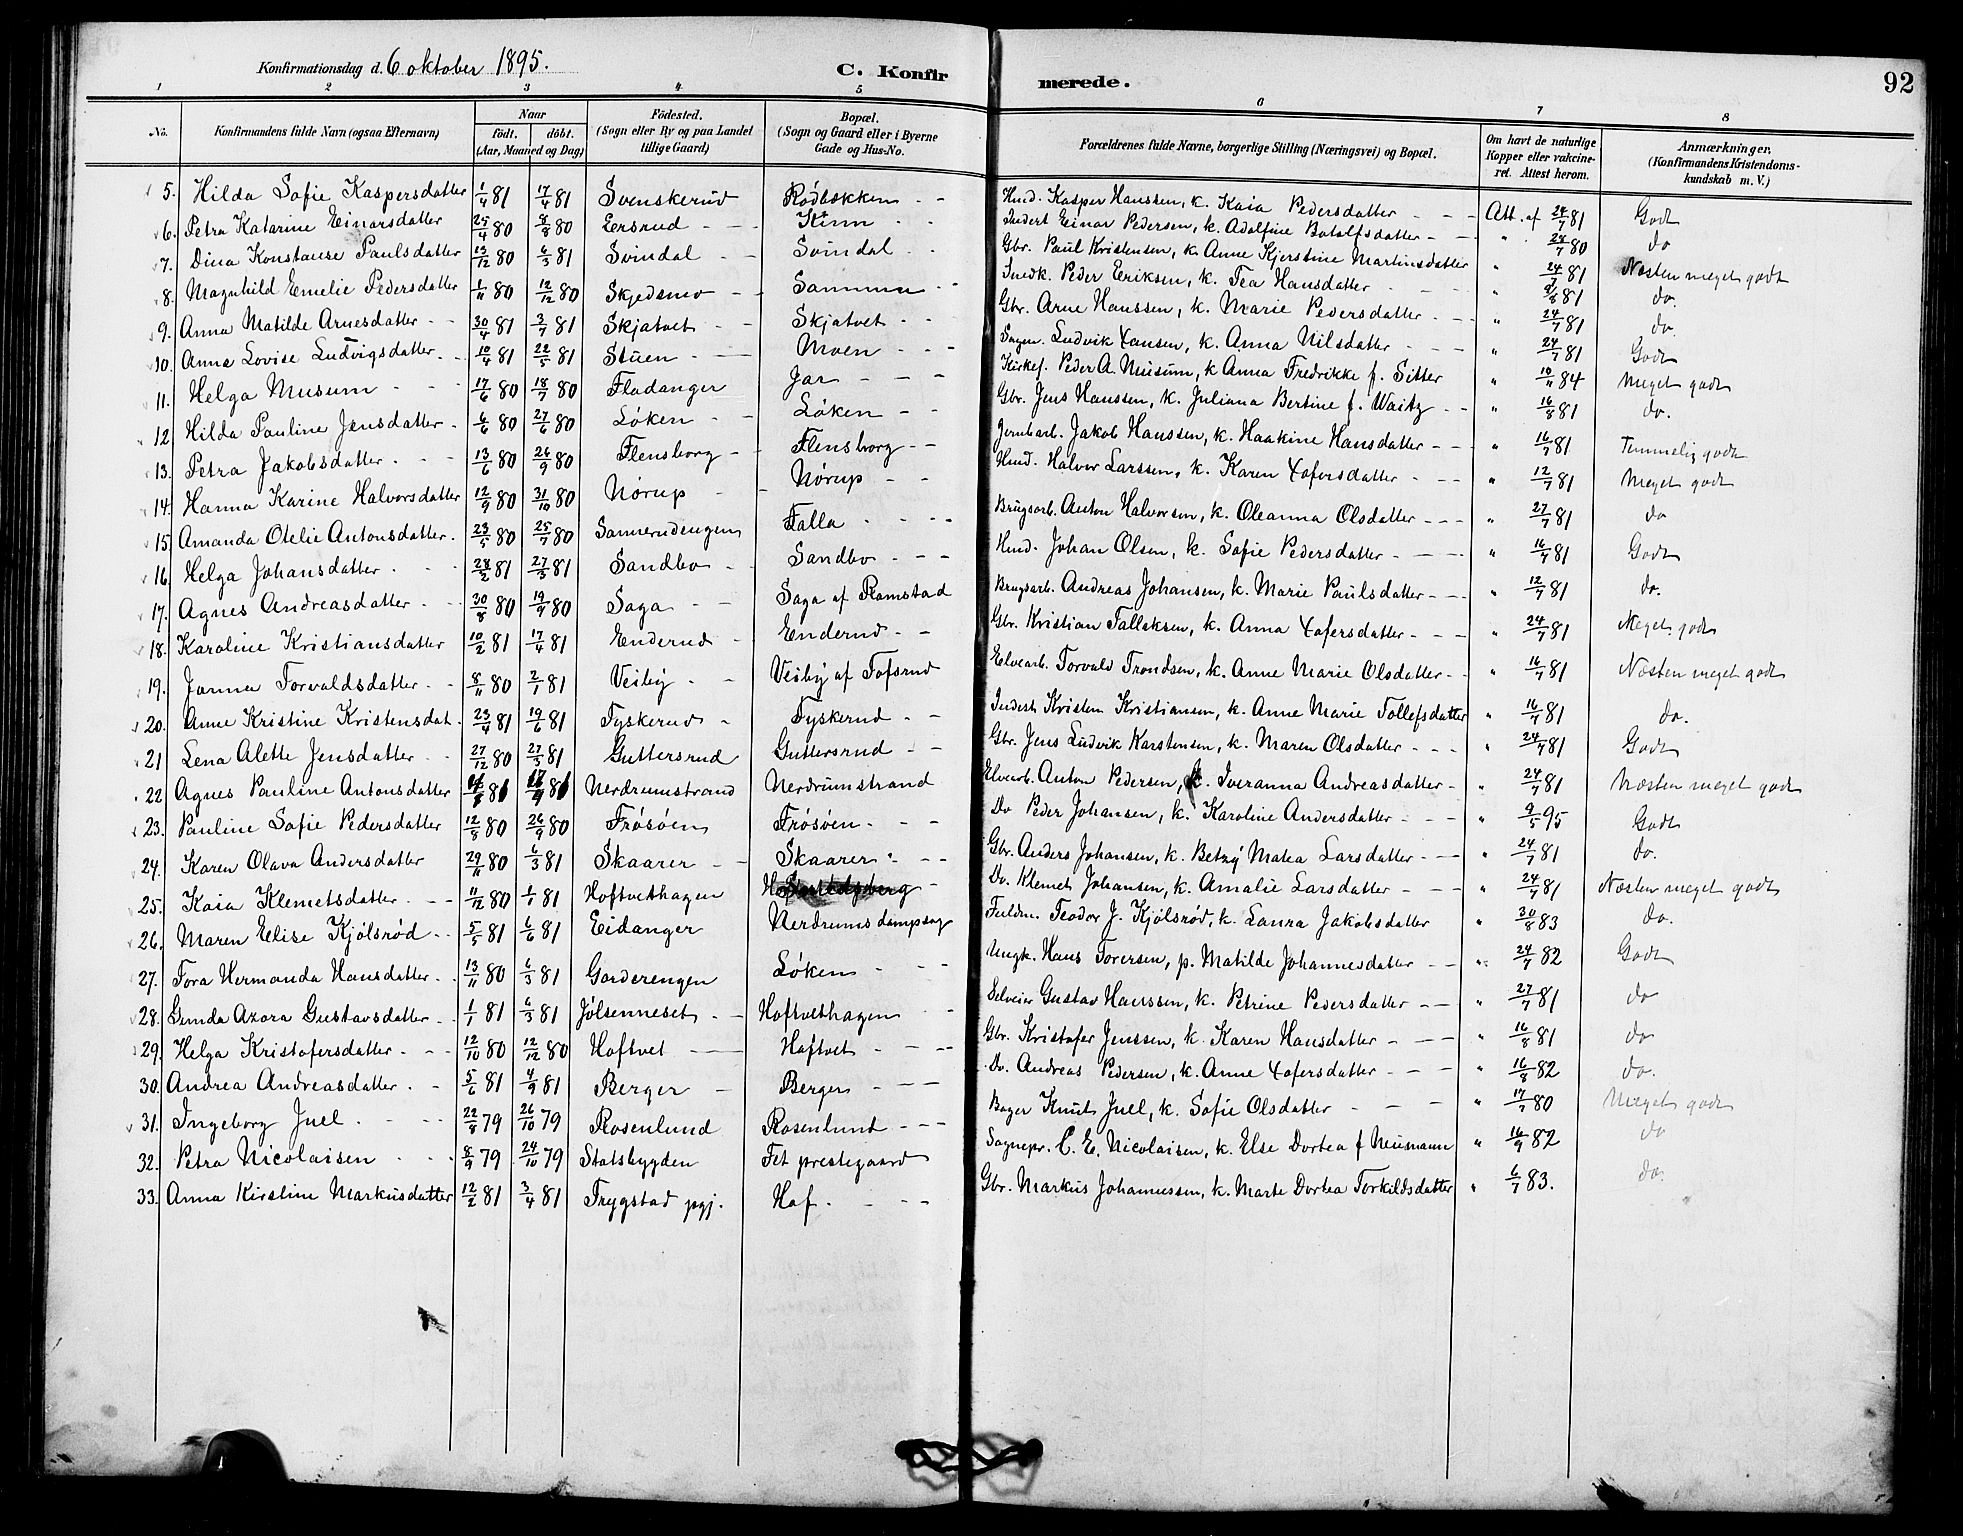 Konfirmationsdag d. 6 oktober 1895. C. Konfirmerede. 92
1 2 3 4 5 6 7 8
No. Konfirmandens fulde Navn (ogsaa Efternavn) Naar födt. döbt. (Aar, Maaned og Dag) Födested. (Sogn eller By og paa Landet tillige Gaard) Bopæl. (Sogn og Gaard eller i Byerne Gade og Hus-No. Forældrenes fulde Navne, borgerlige Stilling (Næringsvei) og Bopæl. Om havt de naturlige Kopper eller vakcineret. Attest herom. Anmærkninger. (Konfirmandens Kristendomskundskab m. V.)
5. Hilda Sofie Kaspersdatter 1/4 81 17/4 81 Svenskerud Rödbækken Hmd. Kasper Hanssen, k. Kaia Pedersdatter Att. af 24/7 81 Godt
6. Petra Katarine Einarsdatter 25/4 80 8/8 80 Eersrud Inderst Einar Pedersen, k. Adolfine Botolfsdatter " 24/7 80 do
7. Dina Konstanse Paulsdatter 13/12 80 6/3 81 Svindal Svindal Gbr. Paul Kristensen, k. Anne Kjerstine Martinsdatter " 24/7 81 Næsten meget godt
8. Magnhild Emelie Pedersdatter 1/11 80 12/12 80 Skjedsmo Sammen Snedk. Peder Eriksen, k. Tea Hansdatter " /8 81 do.
9. Anna Matilde Arnesdatter 30/4 81 3/7 81 Skjatvet Skjatvet Gbr. Arne Hanssen, k. Marie Pedersdatter " 24/7 81 do.
10. Anna Lovise Ludvigsdatter 10/4 81 22/5 81 Stuen Moen Sagm. Ludvik Hansen, k. Anna Nilsdatter " 24/7 81 Godt
11. Helga Musum 17/6 80 18/7 80 Fladanger Jar Kirkes. Peder A. Musum, k Anna Fredrikke f. Sitter " 10/11 84 Meget godt
12 Hilda Pauline Jensdatter 6/6 80 27/6 80 Löken Löken Gbr. Jens Hanssen, k. Juliana Bertine f. Waitz " 16/8 81 do.
13. Petra Jakobsdatter 13/6 80 26/9 80 Flensborg Flensborg Jernbarb. Jakob Hanssen, k. Haakine Hansdatter " 16/7 81 Temmelig godt
14. Hanna Karine Halvorsdatter 12/9 80 31/10 80 Nörup Nörup Hmd. Halvor Larssen, k. Karen Xofersdatter " 12/7 81 Meget godt
15. Amanda Otelie Antonsdatter 23/5 80 25/7 80 Sannerudengen Falla Brugsarb. Anton Halvorsen, k. Oleanna Olsdatter " 27/7 81 do
16. Helga Johansdatter 28/2 81 27/3 81 Sandbo Sandbo Hmd. Johan Olsen, k. Sofie Pedersdatter " 16/7 81 Godt
17. Agnes Andreasdatter 30/8 80 19/9 80 Saga Saga af Ramstad Brugsarb. Andreas Johansen, k. Marie Paulsdatter " 12/7 81 do.
18. Karoline Kristiansdatter 10/2 81 17/4 81 Enderud Enderud Gbr. Kristian Tallaksen, k. Anna Xofersdatter " 24/7 81 Meget godt
19. Janna Torvaldsdatter 8/11 80 2/1 81 Veiby Veiby af Tofsrud Elvearb. Torvald Trondsen, k. Anne Marie Olsdatter " 16/7 81 Næsten meget godt
20. Anne Kristine Kristensdat. 23/4 81 19/6 81 Tyskerud Tyskerud Inderst Kristen Kristiansen, k. Anne Marie Tollefsdatter " 16/7 81 do.
21 Lena Alette Jensdatter 27/12 80 27/3 81 Guttersrud Guttersrud Gbr. Jens Ludvik Karstensen, k. Maren Olsdatter " 24/7 81 Godt
22 Agnes Pauline Antonsdatter 81 17/4 81 Nerdrumstrand Nerdrumstrand Elvearb. Anton Pedersen, k. Iveranna Andreasdatter " 24/7 81 Næsten meget godt
23. Pauline Sofie Pedersdatter 12/8 80 26/9 80 Frösöen Frösöen Do Peder Johansen, k. Karoline Andersdatter " 9/5 95 Godt
24. Karen Olava Andersdatter 29/11 80 6/3 81 Skaarer Skaarer Gbr. Anders Johansen, k. Betzy Matea Larsdatter " 24/7 81 do.
25. Kaia Klemetsdatter 11/12 80 1/1 81 Hoftvethagen Do. Klemet Johansen, k. Amalie Larsdatter " 24/7 81 Næsten meget godt
26. Maren Elise Kjölsröd 5/5 81 6/6 81 Eidanger Nerdrums dampsag Fuldm. Teodor J. Kjölsröd, k. Laura Jakobsdatter " 30/8 83 do.
27. Tora Hermanda Hansdatter 13/11 80 6/3 81 Garderengen Löken Ungk. Hans Torersen, p. Matilde Johannesdatter " 24/7 82 Godt
28. Gunda Azora Gustavsdatter 1/1 81 6/3 81 Jölsenneset Hoftvethagen Selveier Gustav Hanssen, k. Petrine Pedersdatter " 27/7 81 do
29. Helga Kristofersdatter 12/10 80 12/12 80 Hoftvet Hoftvet Gbr. Kristofer Jenssen, k. Karen Hansdatter " 16/8 81 do
30. Andrea Andreasdatter 5/6 81 4/9 81 Berger Berger Do. Andreas Pedersen, k. Anne Xofersdatter " 16/8 82 do.
31. Ingeborg Juel 22/8 79 26/10 79 Rosenlund Rosenlund Bager Knut Juel, k. Sofie Olsdatter " 17/7 80 Meget godt
32. Petra Nicolaisen 8/9 79 24/10 79 Statsbygden Fet prestegaard Sognepr. C. E. Nicolaisen, k. Else Dortea f Neumann " 16/9 82 do
33. Anna Kirstine Markusdatter 12/2 81 3/4 81 Trygstad pgj. Haf Gbr. Markus Johannessen, k. Marte Dortea Torkildsdatter " 6/7 83. do.